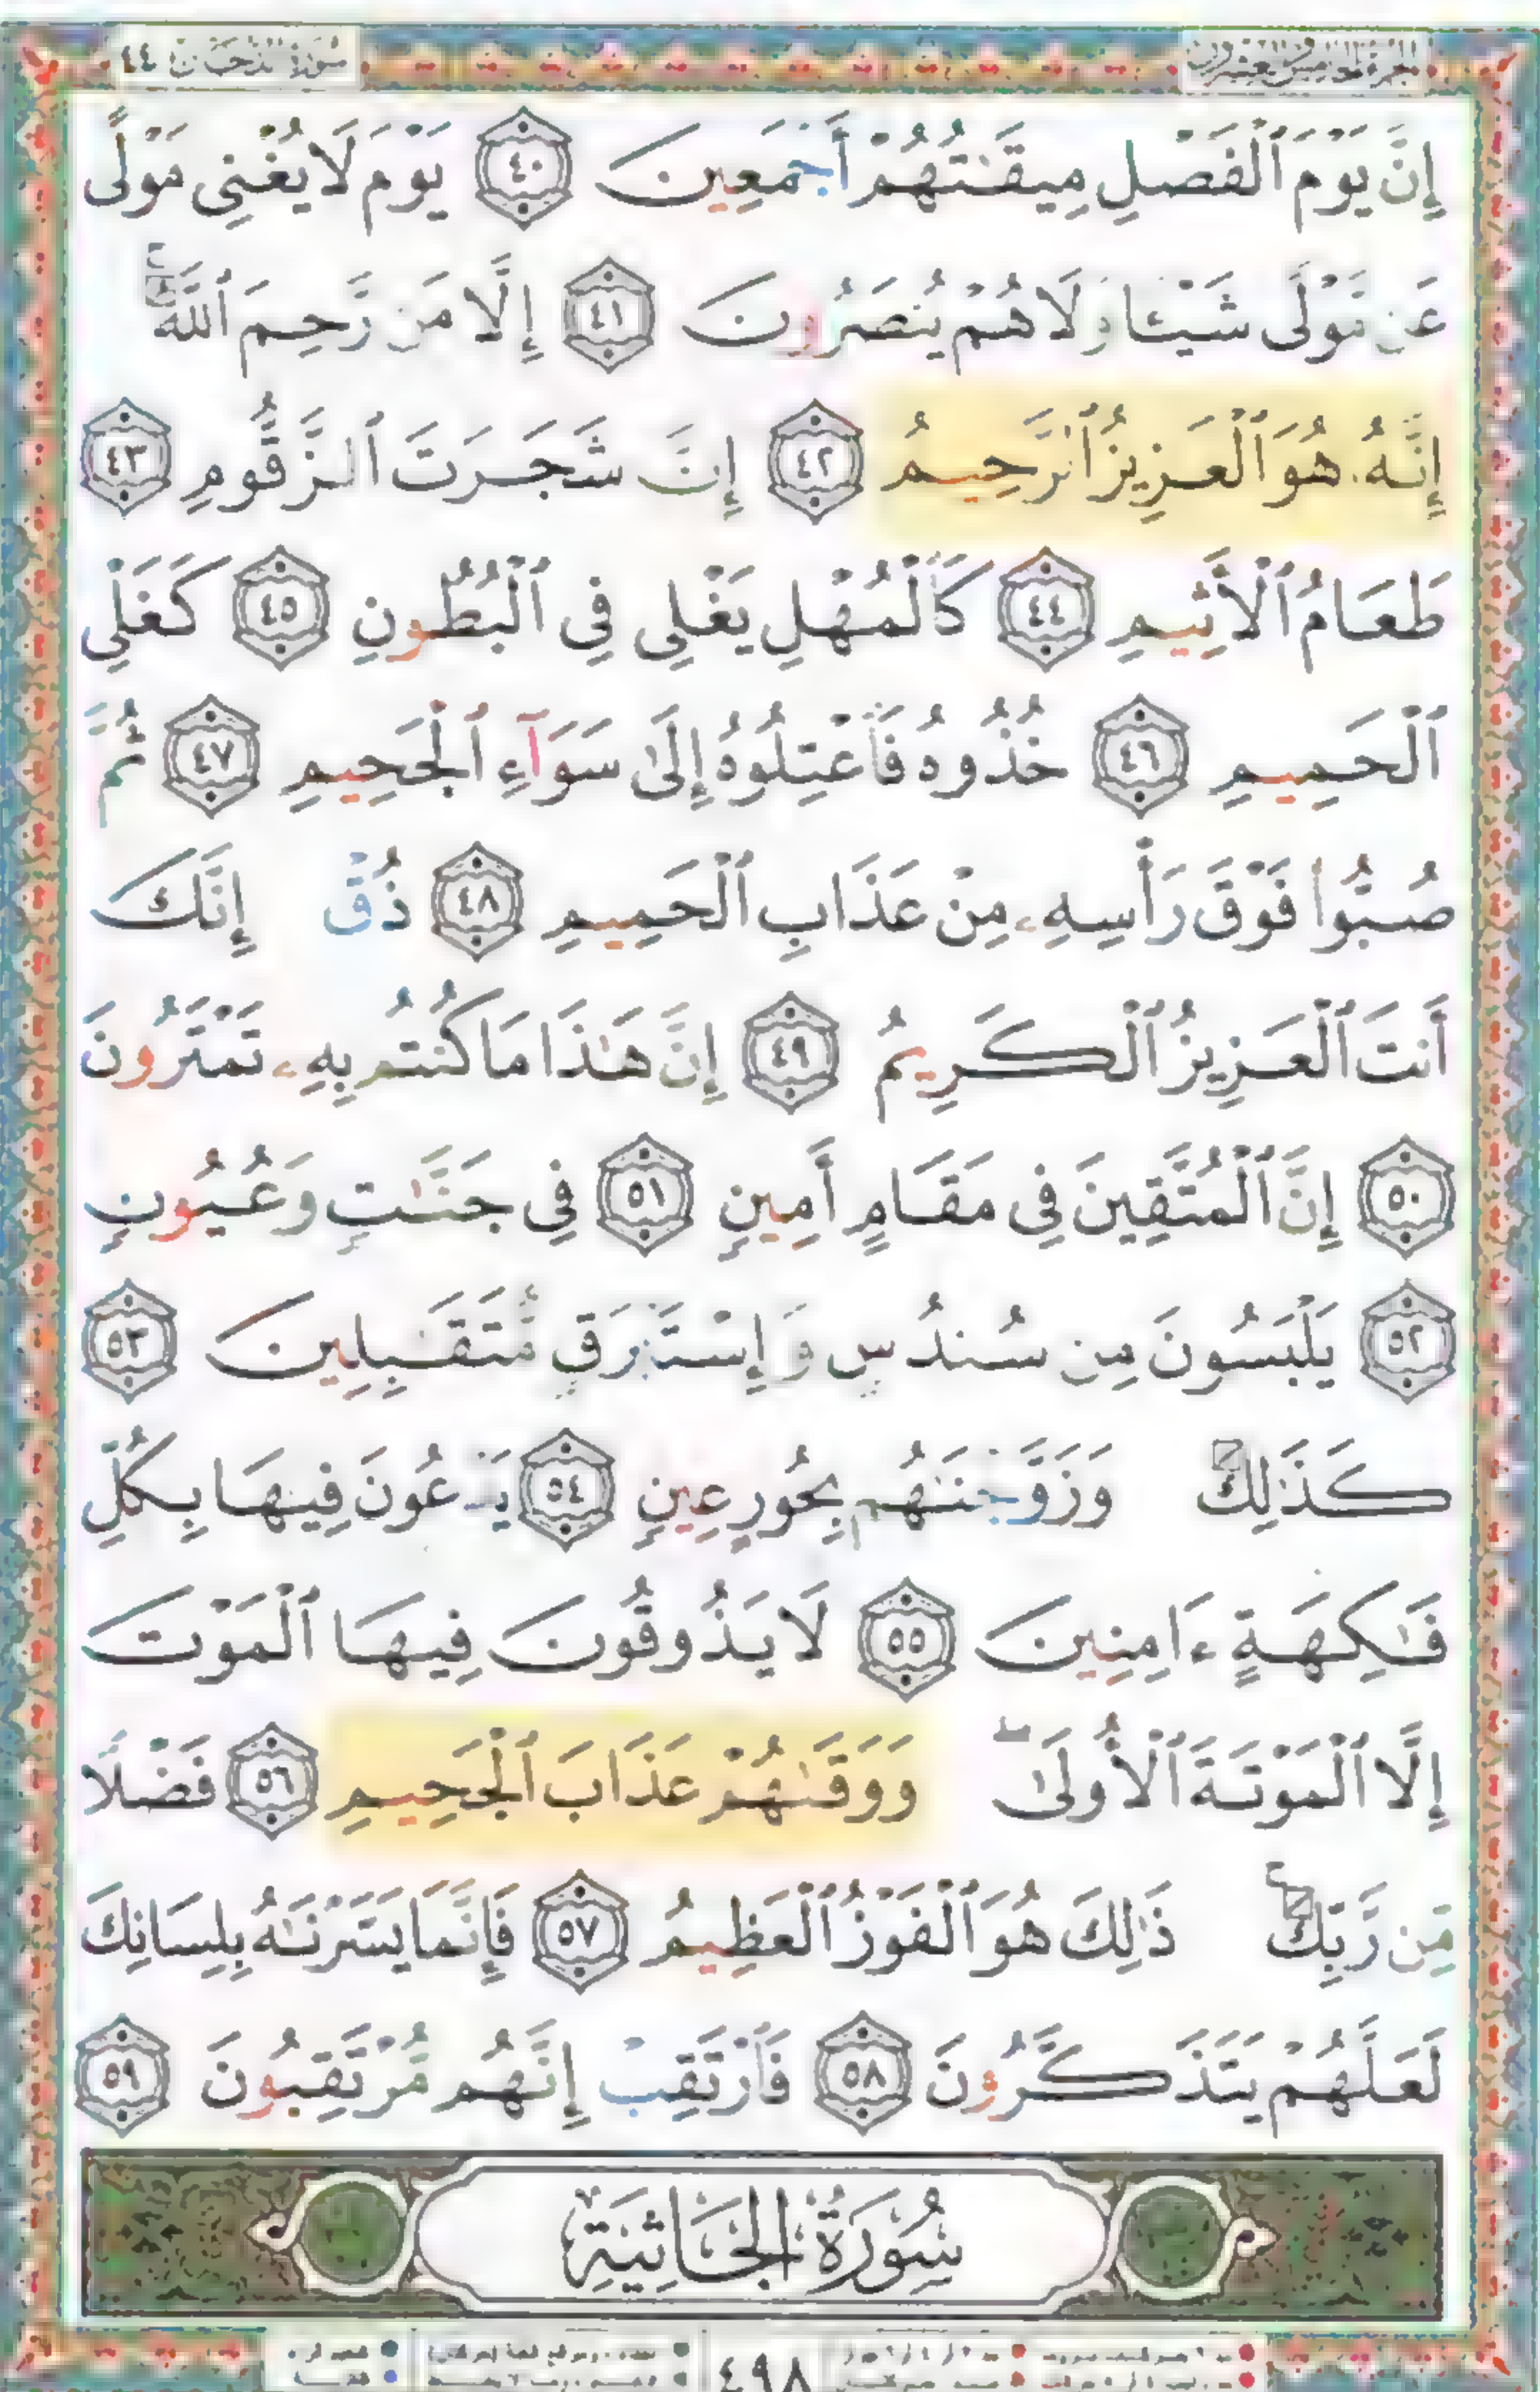 سورة الدخان ٤٤
الجزء الخامس والعشرون
إِنَّ يَوْمَ ٱلْفَصْلِ مِيقَـٰتُهُمْ أَجْمَعِينَ ٤٠ يَوْمَ لَا يُغْنِى مَوْلًى
عَن مَّوْلًى شَيْـًٔا وَلَا هُمْ يُنصَرُونَ ٤١ إِلَّا مَن رَّحِمَ ٱللَّهُ ۚ
إِنَّهُۥ هُوَ ٱلْعَزِيزُ ٱلرَّحِيمُ ٤٢ إِنَّ شَجَرَتَ ٱلزَّقُّومِ ٤٣
طَعَامُ ٱلْأَثِيمِ ٤٤ كَٱلْمُهْلِ يَغْلِى فِى ٱلْبُطُونِ ٤٥ كَغَلْىِ
ٱلْحَمِيمِ ٤٦ خُذُوهُ فَٱعْتِلُوهُ إِلَىٰ سَوَآءِ ٱلْجَحِيمِ ٤٧ ثُمَّ
صُبُّوا۟ فَوْقَ رَأْسِهِۦ مِنْ عَذَابِ ٱلْحَمِيمِ ٤٨ ذُقْ إِنَّكَ
أَنتَ ٱلْعَزِيزُ ٱلْكَرِيمُ ٤٩ إِنَّ هَـٰذَا مَا كُنتُم بِهِۦ تَمْتَرُونَ
٥٠ إِنَّ ٱلْمُتَّقِينَ فِى مَقَامٍ أَمِينٍ ٥١ فِى جَنَّـٰتٍ وَعُيُونٍ
٥٢ يَلْبَسُونَ مِن سُندُسٍ وَإِسْتَبْرَقٍ مُّتَقَـٰبِلِينَ ٥٣
كَذَٰلِكَ وَزَوَّجْنَـٰهُم بِحُورٍ عِينٍ ٥٤ يَدْعُونَ فِيهَا بِكُلِّ
فَـٰكِهَةٍ ءَامِنِينَ ٥٥ لَا يَذُوقُونَ فِيهَا ٱلْمَوْتَ
إِلَّا ٱلْمَوْتَةَ ٱلْأُولَىٰ ۖ وَوَقَـٰهُمْ عَذَابَ ٱلْجَحِيمِ ٥٦ فَضْلًا
مِّن رَّبِّكَ ۚ ذَٰلِكَ هُوَ ٱلْفَوْزُ ٱلْعَظِيمُ ٥٧ فَإِنَّمَا يَسَّرْنَـٰهُ بِلِسَانِكَ
لَعَلَّهُمْ يَتَذَكَّرُونَ ٥٨ فَٱرْتَقِبْ إِنَّهُم مُّرْتَقِبُونَ ٥٩
سُورَةُ الجَاثِيَةِ
٤٩٨